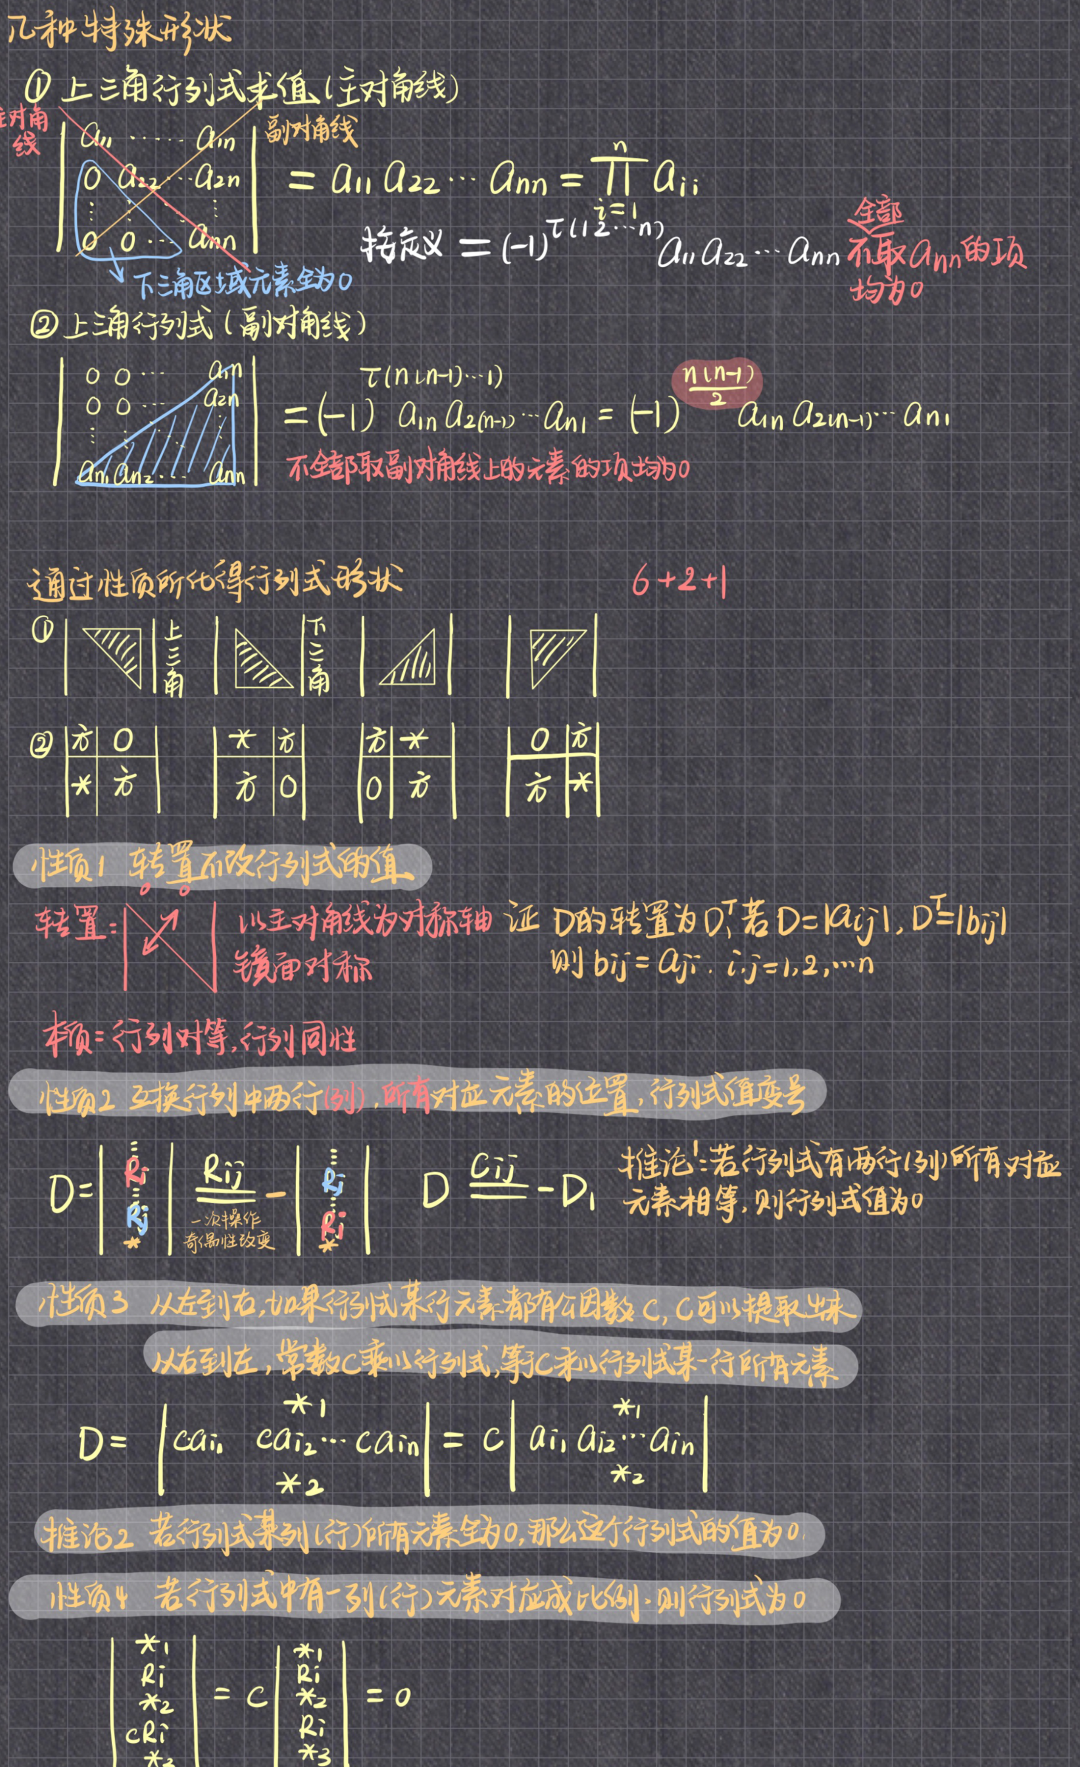 几种特殊形状
① 上三角行列式求值(主对角线)
主对角线
副对角线
a₁₁ ····· a₁ₙ
0 a₂₂ ··· a₂ₙ
⋮ ⋮ ⋮
0 0 ··· aₙₙ
= a₁₁ a₂₂ ··· aₙₙ = ∏ᵢ₌₁ⁿ aᵢᵢ
按定义 = (-1)^τ(12···n) a₁₁ a₂₂ ··· aₙₙ
全部
不取 aₙₙ 的项
均为0
下三角区域元素全为0
② 上三角行列式(副对角线)
0 0 ··· a₁ₙ
0 0 ··· a₂ₙ
⋮ ⋮ ⋮
aₙ₁ aₙ₂ ··· aₙₙ
= (-1)^τ(n(n-1)···1) a₁ₙ a₂₍ₙ₋₁₎ ··· aₙ₁ = (-1)^(n(n-1)/2) a₁ₙ a₂₍ₙ₋₁₎ ··· aₙ₁
不全部取副对角线上的元素的项均为0
通过性质所化得行列式形状
6+2+1
① 上三角 下三角
② 方 0 * 方 方 * 0 方
* 方 方 0 0 方 方 *
性质1 转置不改行列式的值
转置:
以主对角线为对称轴
镜面对称
证 D的转置为Dᵀ, 若D=|aij|, Dᵀ=|bij|
则 bij = aji. i.j=1,2,···n
本质=行列对等,行列同性
性质2 互换行列中两行(列),所有对应元素的位置,行列式值变号
D= | ⋮ Ri ⋮ Rj * | Rij = - | ⋮ Rj ⋮ Ri * |
一次操作
奇偶性改变
D Cij = -D₁
推论1:若行列式有两行(列)所有对应
元素相等,则行列式值为0
性质3 从左到右,如果行列式某行元素都有公因数C,C可以提取出来
从右到左,常数C乘以行列式,等于C乘以行列式某一行所有元素
*1 *1
D= | caᵢ₁ caᵢ₂ ··· caᵢₙ | = C | aᵢ₁ aᵢ₂ ··· aᵢₙ |
*2 *2
推论2 若行列式某列(行)所有元素全为0,那么这个行列式的值为0.
性质4 若行列式中有一列(行)元素对应成比例.则行列式为0
*1 *1
Ri Ri
*2 = C *2 = 0
cRi Ri
*3 *3